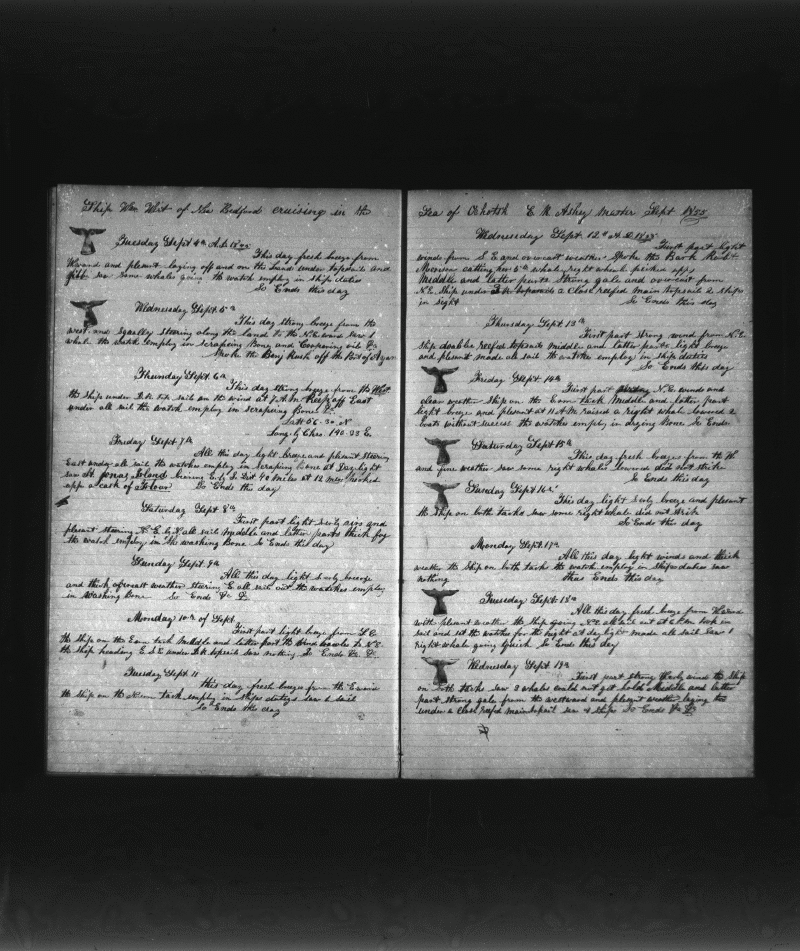 Ship Wm Wirt of New Bedford cruising in the
Tuesday Sept 4th A.D. 1855
This day fresh breeze from
and plesent laying off and on the Land under topsails and
saw some whales going the watch employ in ships duties
So Ends this day
Wednesday Sept 5th
This day strong breeze from the
west and squally Stearing along the land to the N.E. ward saw 1
whale the watch employ in scrapeing Bone and Coopering oil &c
Spoke the Benj Rush off the Port of Ayan
Thursday Sept 6th
This day strong breeze from the West
the Ships under D.R. top sail on the wind at 7 A.M. Keep off East
under all sail the watch employ in scrapeing Bone &c
Latt 56-30 N
Long by Chro 140-23 E.
Friday Sept 7th
All this day light breeze and plesent stearing
East under all sail the watches employ in Scrapeing Bone at Daylight
saw St Jonas Island bearing E by S. Dist 40 miles at 12 M
opp a cask of Flour So Ends this day
Saturday Sept 8th
First part light airs and
plesent stearing N.E. by N all sail middle and latter parts thick fog
the watch employ in the washing Bone So Ends this day
Sunday Sept 9th
All this day light breeze
and thick weather stearing E all sail out the watches employ
in washing Bone So Ends &c &c
Monday 10th of Sept
First part light breeze from S.E.
the ship on the Eern tack Middle and latter part the wind to N.E.
the ship heading E.S.E under D.R topsails saw nothing So Ends &c &c
Tuesday Sept 11
this day fresh breeze from the E ward
the ship on the tack employ in ships dutys saw 1 sail
So Ends this day
Sea of Ochotsk E M Ashey Master Sept 1855
Wednesday Sept 12th A.D. 1855
First part light
winds from S E and overcast weather Spoke the Bark
cutting her 5th whale right which picked upp
Middle and latter parts Strong gale and overcast from
N.E. Ship under a close reefed main topsail 2 ships
in sight So Ends this day
Thursday Sept 13th
First part strong wind from N.E.
Ship double reefed topsails middle and latter parts light breeze
and plesent made all sail the watches employ in ship duties
So Ends this day
Friday Sept 14th
First part N.E. winds and
clear weather Ship on the Eern tack Middle and latter part
light breeze and plesent at 11 A.M. raised a right whale lowered 2
boats without success the watches employ in drying Bone So Ends
Saturday Sept 15th
This day fresh breezes from the
and fine weather saw some right whales lowered did not strike
So Ends this day
Sunday Sept 16th
This day light breeze and plesent
the Ship on both tacks saw some right whale did not strik
So Ends this day
Monday Sept 17th
All this day light winds and thick
weather the Ship on both tacks the watch employ in Ships duties saw
nothing thus Ends this day
Tuesday Sept 18th
All this day fresh breeze from
with plesent weather the ship going N.E. all sail out at 6 took in
sail and set the watches for the night at daylight made all sail saw 1
right whale going quick So Ends this day
Wednesday Sept 19th
First part strong wind the Ship
on both tacks saw 2 whales could not get hold Middle and latter
part strong gale from the westward and plesent weather laying too
under a close reefed maintopsail saw 4 ships So Ends &c &c